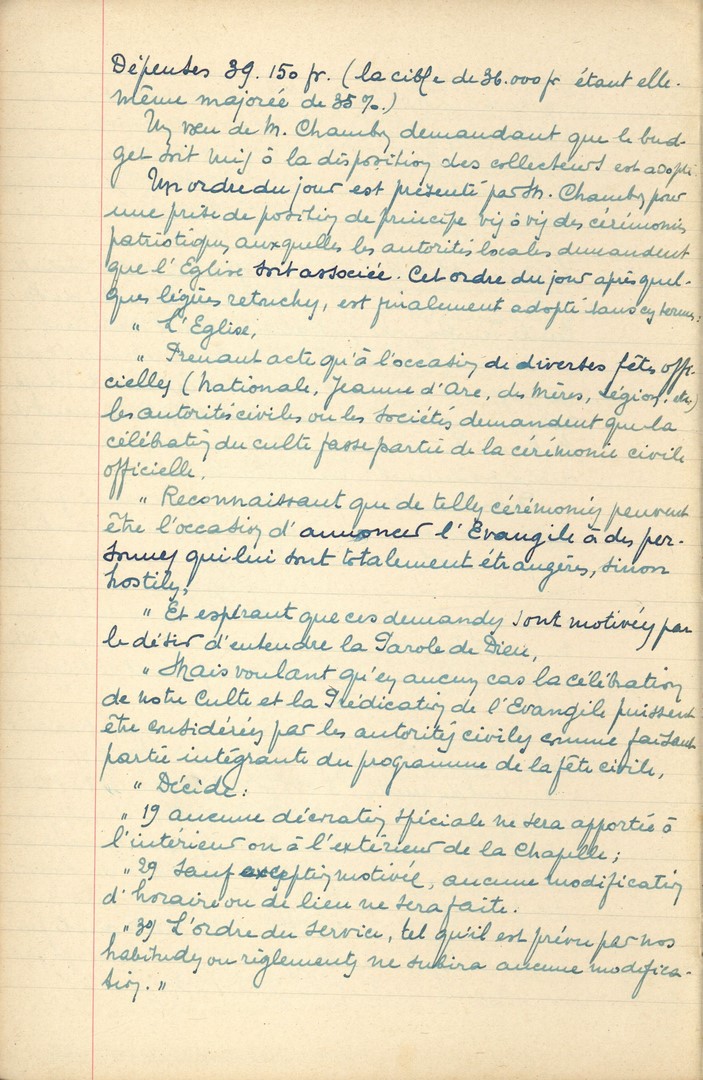 Dépenses 39.150 fr. (la cible de 36.000 fr étant elle-
même majorée de 35%.)
Un vœu de M. Chambon demandant que le bud-
get soit mis à la disposition des collecteurs est adopté
Un ordre du jour est présenté par M. Chambon pour
une prise de position de principe vis à vis des cérémonies
patriotiques auxquelles les autorités locales demandent
que l'Eglise soit associée. Cet ordre du jour après quel-
ques légères retouches, est finalement adopté dans ces termes:
" L'Eglise,
" Prenant acte qu'à l'occasion de diverses fêtes offi-
cielles (Nationale, Jeanne d'Arc, des Mères, Légion, etc)
les autorités civiles ou les sociétés demandent que la
célébration du culte fasse partie de la cérémonie civile
officielle,
" Reconnaissant que de telles cérémonies peuvent
être l'occasion d'annoncer l'Evangile à des per-
sonnes qui lui sont totalement étrangères, sinon
hostiles,
" Et espérant que ces demandes sont motivées par
le désir d'entendre la Parole de Dieu,
" Mais voulant qu'en aucun cas la célébration
de notre Culte et la Prédication de l'Evangile puissent
être considérées par les autorités civiles comme faisant
partie intégrante du programme de la fête civile,
" Décide:
" 1º) aucune décoration spéciale ne sera apportée à
l'intérieur ou à l'extérieur de la Chapelle;
" 2º) Sauf exception motivée, aucune modification
d'horaire ou de lieu ne sera faite.
" 3º) L'ordre du service, tel qu'il est prévu par nos
habitudes ou règlements ne subira aucune modifica-
tion. "